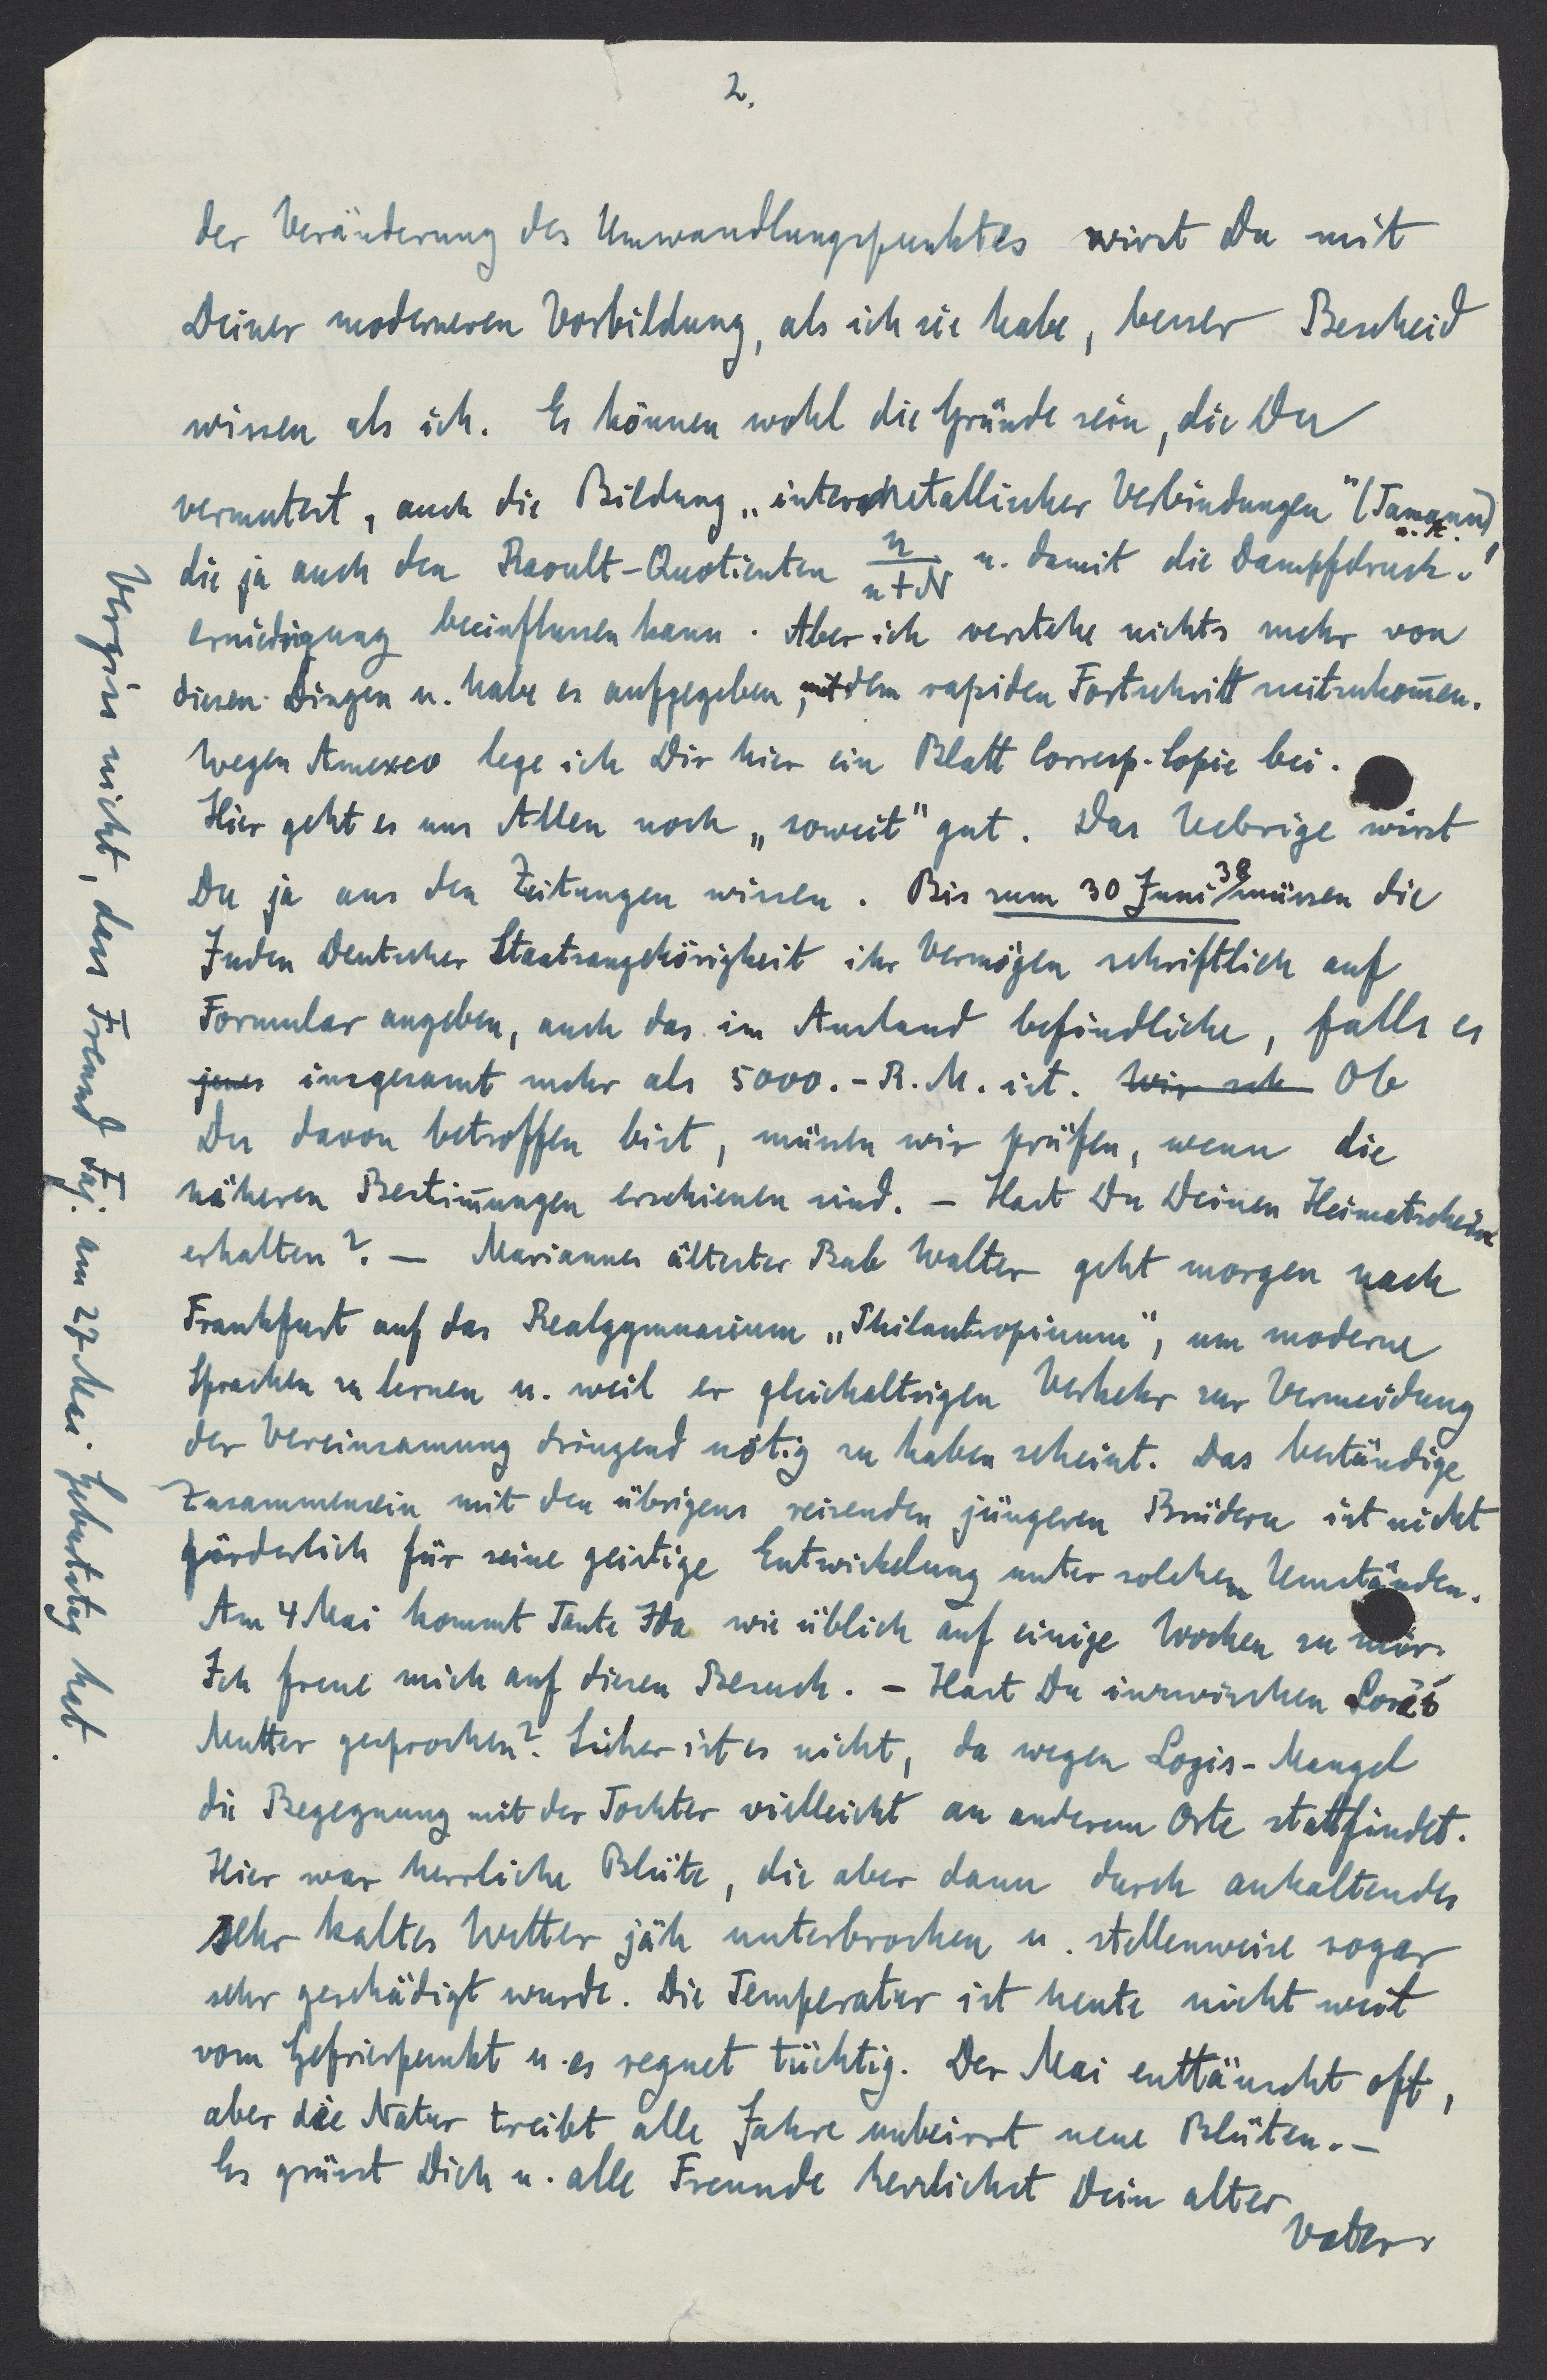 2.
der Veränderung des Umwandlungspunktes wirst Du mit
Deiner moderneren Vorbildung, als ich sie habe, besser Bescheid
wissen als ich. Es können wohl die Gründe sein, die Du
vermutest, auch die Bildung „intermetallischer Verbindungen" (Tamann)
u. A.
die ja auch den Raoult-Quotienten n/n+N u. damit die Dampfdruck-
erniedrigung beeinflussen kann. Aber ich verstehe nichts mehr von
diesen Dingen u. habe es aufgegeben, mit dem rapiden Fortschritt mitzukom̄en.
Wegen Amexco lege ich Dir hier ein Blatt Corresp.-Copie bei.
Hier geht es uns Allen noch „soweit" gut. Das Uebrige wirst
Du ja aus den Zeitungen wissen. Bis zum 30 Juni 38 müssen die
Juden Deutscher Staatsangehörigkeit ihr Vermögen schriftlich auf
Formular angeben, auch das im Ausland befindliche, falls es
jenes insgesamt mehr als 5000.- R.M. ist. Wir seh Ob
Du davon betroffen bist, müssen wir prüfen, wenn die
näheren Bestim̄ungen erschienen sind. – Hast Du Deinen Heimatschein
erhalten?. – Mariannes ältester Bub Walter geht morgen nach
Frankfurt auf das Realgymnasium „Philantropinum", um moderne
Sprachen zu lernen u. weil er gleichaltrigen Verkehr zur Vermeidung
der Vereinsamung dringend nötig zu haben scheint. Das beständige
Zusammensein mit den übrigens reizenden jüngeren Brüdern ist nicht
förderlich für seine geistige Entwickelung unter solchen Umständen.
Am 4 Mai kommt Tante Ida wie üblich auf einige Wochen zu mir.
Ich freue mich auf diesen Besuch. – Hast Du inzwischen Lore's
Mutter gesprochen?. Sicher ist es nicht, da wegen Logis-Mangel
die Begegnung mit der Tochter vielleicht an anderem Orte stattfindet.
Hier war herrliche Blüte, die aber dann durch anhaltendes
sehr kaltes Wetter jäh unterbrochen u. stellenweise sogar
sehr geschädigt wurde. Die Temperatur ist heute nicht weit
vom Gefrierpunkt u. es regnet tüchtig. Der Mai enttäuscht oft,
aber die Natur treibt alle Jahre unbeirrt neue Blüten. –
Es grüsst Dich u. alle Freunde herzlichst Dein alter
Vater
Vergiss nicht, dass Freund Faj. am 27 Mai Geburtstag hat.